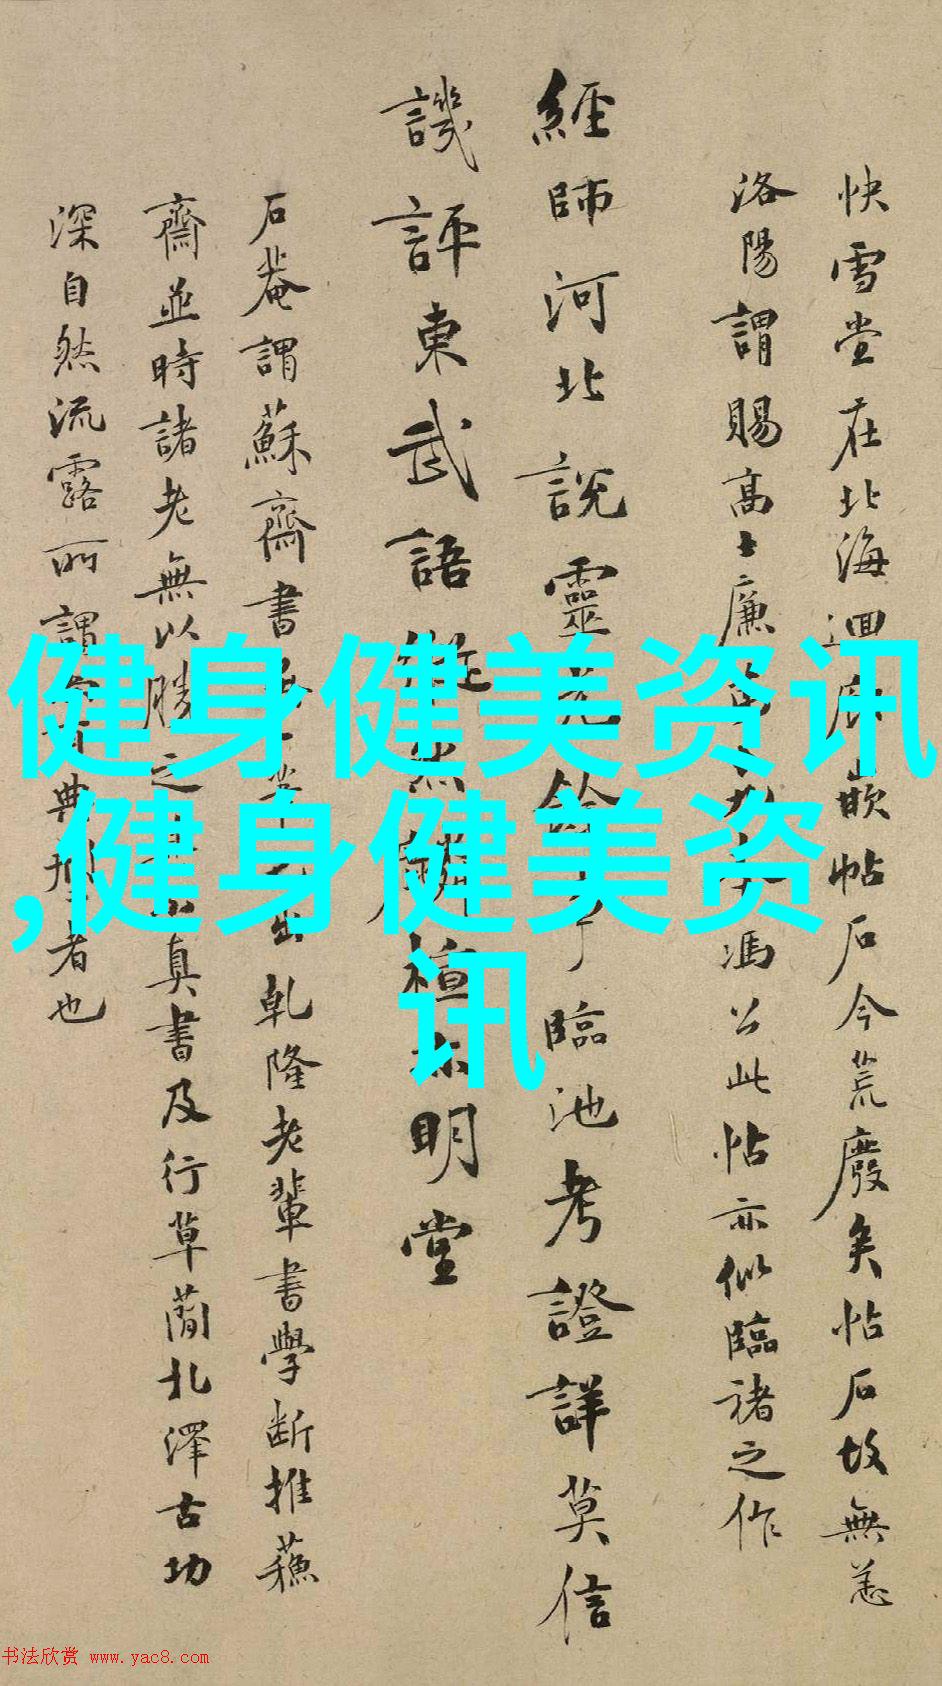 快雪堂在北海迴廊嵌帖石今荒廢矣帖石故無恙
洛陽謂賜高士廉馮公此帖亦似臨褚之作
經師河北說靈光餘事臨池考證詳莫信
譏評東武語儼然顏檀未明堂
石菴謂蘇齋書無一筆出乾隆老輩書學斷推蘇
齋並時諸老無以勝之真書及行草蘭北澤古功
深自然流露所謂有典型者也
健身健美资讯
,健身健美资
讯
书法欣赏 www.yac8.com